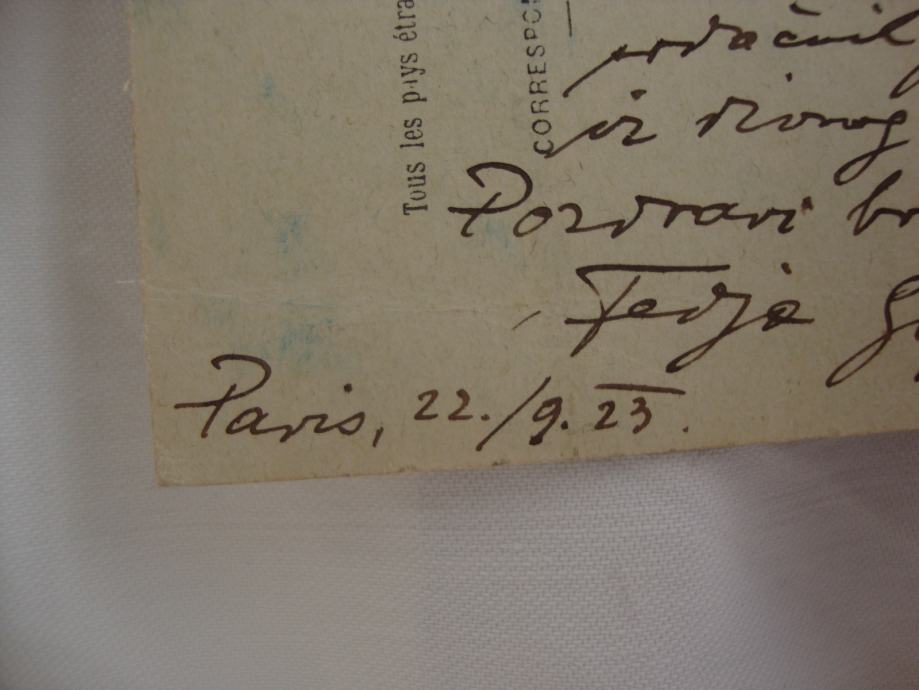 Tous les pays étra
CORRESPO
iz
Pozdravi br
Fedja G
Paris, 22./9. 23.